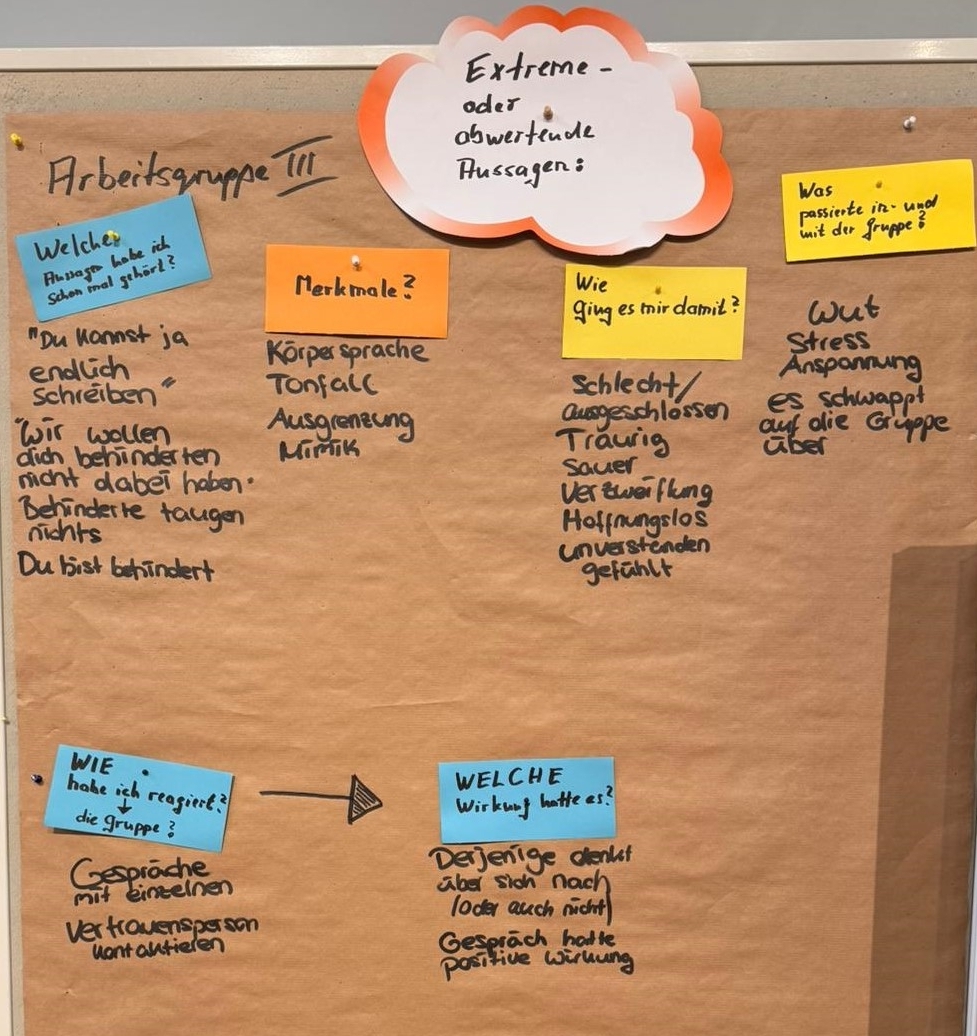 Extreme -
oder
abwertende
Aussagen:
Arbeitsgruppe III
Welche
Aussagen habe ich
schon mal gehört?
"Du kannst ja
endlich
schreiben"
"Wir wollen
dich behinderten
nicht dabei haben.
Behinderte taugen
nichts
Du bist behindert
Merkmale?
Körpersprache
Tonfall
Ausgrenzung
Mimik
Wie
ging es mir damit?
Schlecht/
ausgeschlossen
Traurig
Sauer
Verzweiflung
Hoffnungslos
unverstanden
gefühlt
Was
passierte in- und
mit der Gruppe?
Wut
Stress
Anspannung
es schwappt
auf die Gruppe
über
WIE
habe ich reagiert?
↓
die Gruppe?
Gespräche
mit einzelnen
Vertrauensperson
kontaktieren
WELCHE
Wirkung hatte es?
Derjenige denkt
über sich nach
(oder auch nicht)
Gespräch hatte
positive Wirkung